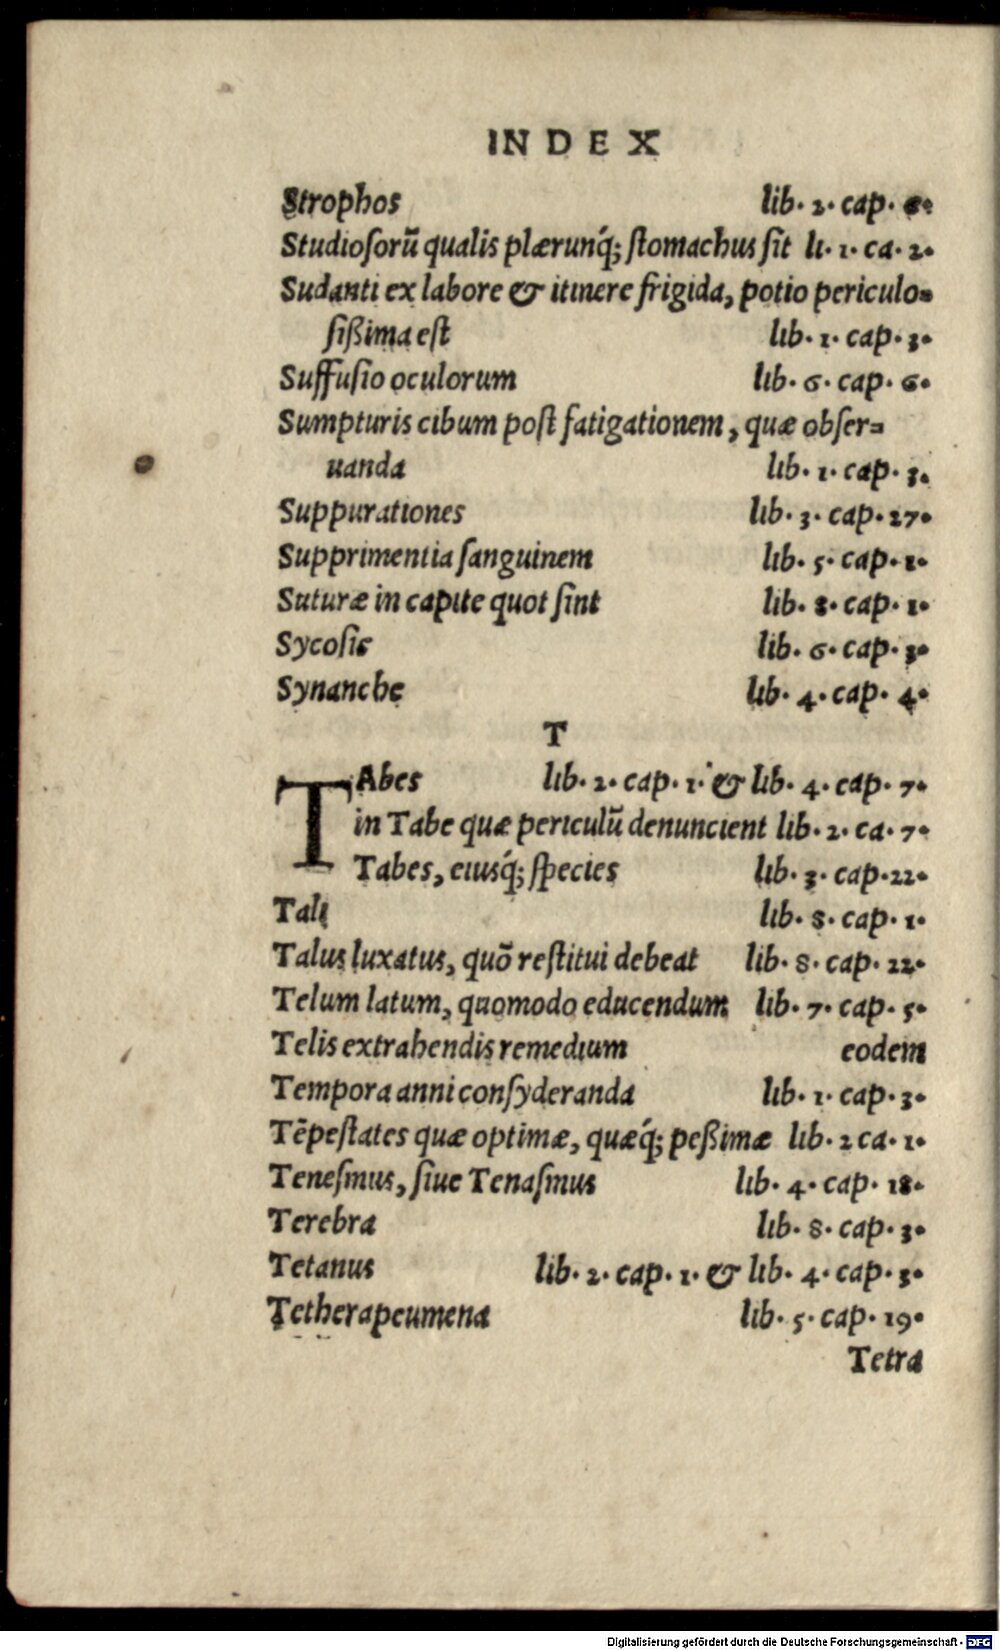 INDEX
Strophos lib. 2. cap.
Studioſorũ qualis plærunq́; ſtomachus ſit li. 1. ca. 2.
Sudanti ex labore & itinere frigida, potio periculo-
ſißima eſt lib. 1. cap. 3.
Suffuſio oculorum lib. 6. cap. 6.
Sumpturis cibum poſt fatigationem, quæ obſer-
uanda lib. 1. cap. 3.
Suppurationes lib. 3. cap. 27.
Supprimentia ſanguinem lib. 5. cap. 1.
Suturæ in capite quot ſint lib. 8. cap. 1.
Sycoſis lib. 6. cap. 3.
Synanche lib. 4. cap. 4.
T
TAbes lib. 2. cap. 1. & lib. 4. cap. 7.
in Tabe quæ periculũ denuncient lib. 2. ca. 7.
Tabes, eiusq́; ſpecies lib. 3. cap. 22.
Tali lib. 8. cap. 1.
Talus luxatus, quõ reſtitui debeat lib. 8. cap. 22.
Telum latum, quomodo educendum lib. 7. cap. 5.
Telis extrahendis remedium eodem
Tempora anni conſyderanda lib. 1. cap. 3.
Tẽpeſtates quæ optimæ, quæq́; peßimæ lib. 2 ca. 1.
Teneſmus, ſiue Tenaſmus lib. 4. cap. 18.
Terebra lib. 8. cap. 3.
Tetanus lib. 2. cap. 1. & lib. 4. cap. 3.
Tetherapeumena lib. 5. cap. 19.
Tetra
Digitalisierung gefördert durch die Deutsche Forschungsgemeinschaft - DFG